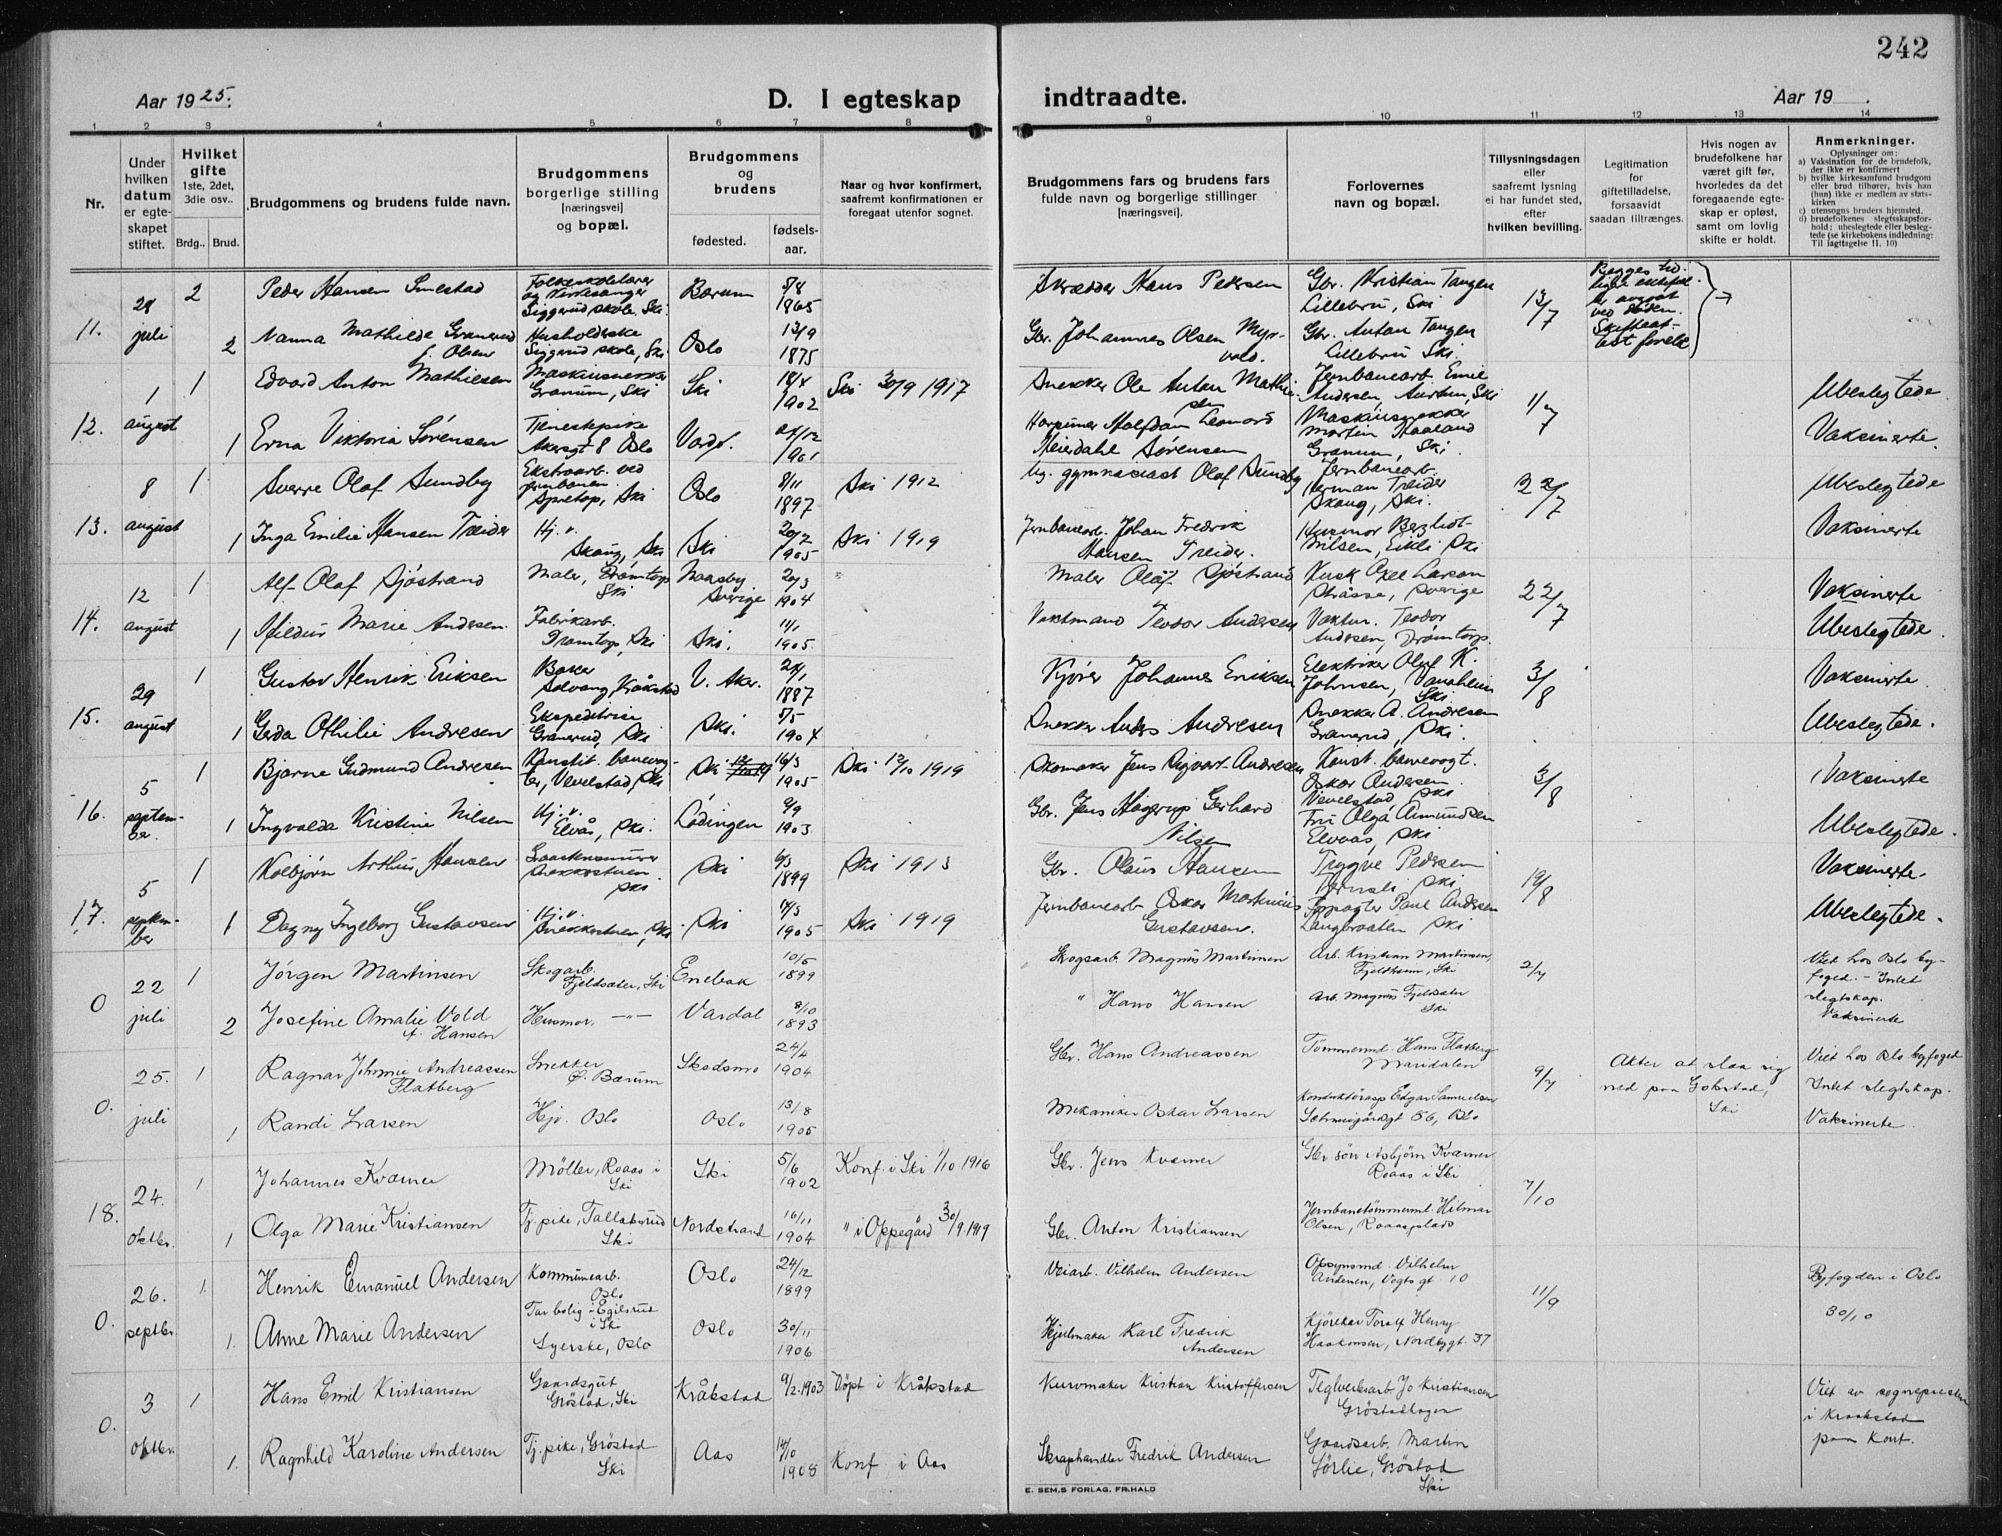 242
Aar 1925.
D. I egteskap indtraadte.
Aar 19
1 2 3 4 5 6 7 8 9 10 11 12 13 14
Nr.
Under hvilken datum er egteskapet stiftet.
Hvilket gifte 1ste, 2det, 3die osv..
Brdg.. Brud.
Brudgommens og brudens fulde navn.
Brudgommens borgerlige stilling [næringsvei] og bopæl.
Brudgommens og brudens
fødested. fødselsaar.
Naar og hvor konfirmert, saafremt konfirmationen er foregaat utenfor sognet.
Brudgommens fars og brudens fars fulde navn og borgerlige stillinger [næringsvei].
Forlovernes navn og bopæl.
Tillysningsdagen eller saafremt lysning ei har fundet sted, efter hvilken bevilling.
Legitimation for giftetilladelse, forsaavidt saadan tiltrænges.
Hvis nogen av brudefolkene har været gift før, hvorledes da det foregaaende egteskap er opløst, samt om lovlig skifte er holdt.
Anmerkninger.
Oplysninger om:
a) Vaksination for de brudefolk, der ikke er konfirmert
b) hvilke kirkesamfund brudgom eller brud tilhører, hvis han (hun) ikke er medlem av statskirken
c) utensogns bruders hjemsted.
d) brudefolkenes slegtsskapsforhold: ubeslegtede eller beslegtede (se kirkebokens indledning: Til iagttagelse II. 10)
11. 28 juli 2 Peder Hansen Smestad Folkeskolelærer og kirkesanger Siggerud skole, Ski Bærum 5/8 1865 Skrædder Hans Pedersen Gbr. Kristian Tangen Lillebru, Ski 13/7
2 Nanna Mathilde Granerud f. Olsen Husholderske Siggerud skole, Ski Oslo 13/9 1875 Gbr. Johannes Olsen Myrvold. Gbr. Anton Tangen Lillebru Ski.
12. 1 august 1 Edvard Anton Mathiesen Granum, Ski Ski 1902 Ski 30/9 1917 Snekker Ole Anton Mathiesen Jernbanearb. Emil Andersen, Ski 1/7 Ubeslegtede.
1 Erna Viktoria Sørensen Tjenestepike Akersgt 8 Oslo Vadsø. 1901 Halfdan Leonard Meierdahl Sørensen Martin Kaaland Granum, Ski. Vaksinerte.
13. 8 august 1 Sverre Olaf Sundby Ekstraarb. ved jernbanen. Ski Oslo 8/11 1897 Ski 1912 gymnasiast Olaf Sundby Jernbanearb. Herman Treider Skaug, Ski. 22/7 Ubeslegtede
1 Inga Emilie Hansen Treider Hj.v. Skaug, Ski Ski 20/2 1905 Ski 1919 Jernbanearb. Johan Fredrik Hansen Treider. Husmor Bergliot Nilsen, Eikli Ski Vaksinerte
14. 12 august 1 Alf Olaf Sjöstrand Maler, Dramtorp Ski Sverige 20/3 1904 Maler Olof Sjöstrand Kusk Axel Larson Sverige 22/7 Vaksinerte
1 Marie Andersen. Fabrikarb. Dramtorp, Ski Ski. 11/1 1905. Vaktmand Teodor Andersen Vaktm. Teodor Andersen, Dramtorp. Ubeslegtede.
15. 29 august 1 Gustav Henrik Eriksen Baker Solvang, Kråkstad V. Aker. 1887 Kjører Johannes Eriksen Elektriker Oluf K. Johnsen, Vanaheim Ski 3/8 Vaksinerte.
1 Gerda Othilie Andresen Ekspeditrise Granerud, Ski Ski. 5/5 1904 Snekker Anders Andresen Snekker A. Andresen Granerud, Ski. Ubeslegtede.
16. 5 september. 1 Bjarne Gudmund Andresen Vevelstad, Ski Ski 16/3 1905 Ski 12/10 1919 Skomaker Jens Sigvart Andresen Konst. banevogt. Oskar Andersen Vevelstad, Ski 3/8 Vaksinerte
1 Ingvalda Kristine Nilsen Hj.v. Elvås, Ski. Lødingen 9/9 1903. Gbr. Jens Hagerup Gerhard Nilsen Fru Olga Amundsen Elvaas, Ski Ubeslegtede.
17. 5 september 1 Kolbjørn Arthur Hansen Snekkestuen Ski Ski 6/3 1899 Ski 1913 Gbr. Olaus Hansen Trygve Pedersen Ski 19/8 Vaksinerte.
1 Dagny Ingeborg Gustavsen Hj.v. Snekkestuen, Ski Ski 1905 Ski 1919 Jernbanearb. Oskar Martinius Gustavsen. Paul Andersen Langbraaten Ski Ubeslegtede.
0 22 juli 1 Jørgen Martinsen Skogarb. Fjeldsæter, Ski Enebak 10/5 1899 Skogsarb. Magnus Martinsen Arb. Kristian Martinsen, Fjeldheim, Ski 2/7 Viet hos Oslo byfoged. - Intet slegtskap. Vaksinerte
2 Josefine Amalie Vold f. Hansen Husmor. —"— Vardal 8/10 1893 " Hans Hansen Arb. Magnus Fjeldsæter Ski
0. 25. juli 1 Ragnar Johnnie Andreassen Flatberg Snekker Ø. Bærum Skedsmo 24/4 1904 Gbr. Hans Andreassen Tömmermd. Hans Flatberg Maridalen 9/7 Akter at slaa sig ned paa Gobstad, Ski Viet hos Oslo byfoged Intet slegtskap.
1 Randi Larsen Hjv. Oslo Oslo 13/8 1905 Mekaniker Oskar Larsen Konduktörasp. Edgar Samuelsen Schweigårdsgt 56, Oslo Vaksinerte.
18. 24. oktbr. 1 Johannes Kværner Möller, Roaas i Ski Ski 5/6 1902 Konf. i Ski 1/10 1916 Gbr. Jens Kværner Gbr. sön Asbjörn Kværner Roaas i Ski 7/10
1 Olga Marie Kristiansen Tj. pike, Tallaksrud Ski Nordstrand 16/11 1904 " i Oppegård 30/9 1919 Gbr. Anton Kristiansen Jernbanetömmermd. Hilmar Olsen, Roaasplads
0. 26. septbr. 1. Henrik Emanuel Andersen Kommunearb. Oslo Oslo 24/12 1899 Veiarb. Vilhelm Andersen Opsynsmd. Vilhelm Andersen, Vogts gt 10 11/9 Byfogden i Oslo 30/10
Tar bolig i Egilsrud i Ski
1. Anne Marie Andersen Syerske, Oslo Oslo 30/11 1906 Hjulmaker Karl Fredrik Andersen Kjörekar Toralf Henry Haakonsen, Nordbygt. 37
0. 3 oktbr. 1 Hans Emil Kristiansen Gaardsgut Gröstad, Ski Kråkstad 9/2 1903 Döpt i Kråkstad Kurvmaker Kristian Kristoffersen Teglverksarb. Jo Kristiansen Gröstadhagen Viet av sognepresten i Kraakstad paa Kont.
1. Ragnhild Karoline Andersen Tj. pike, Gröstad Ski Aas 14/10 1908 Konf i Aas Skraphandler Fredrik Andersen Gaardsarb. Martin Sörlie, Gröstad Ski
E. SEM,S FORLAG, FR:HALD